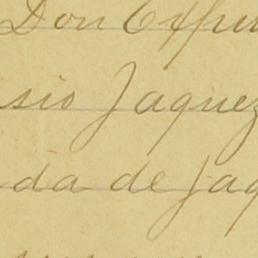 Don
sio Jaquez
da de Jaq